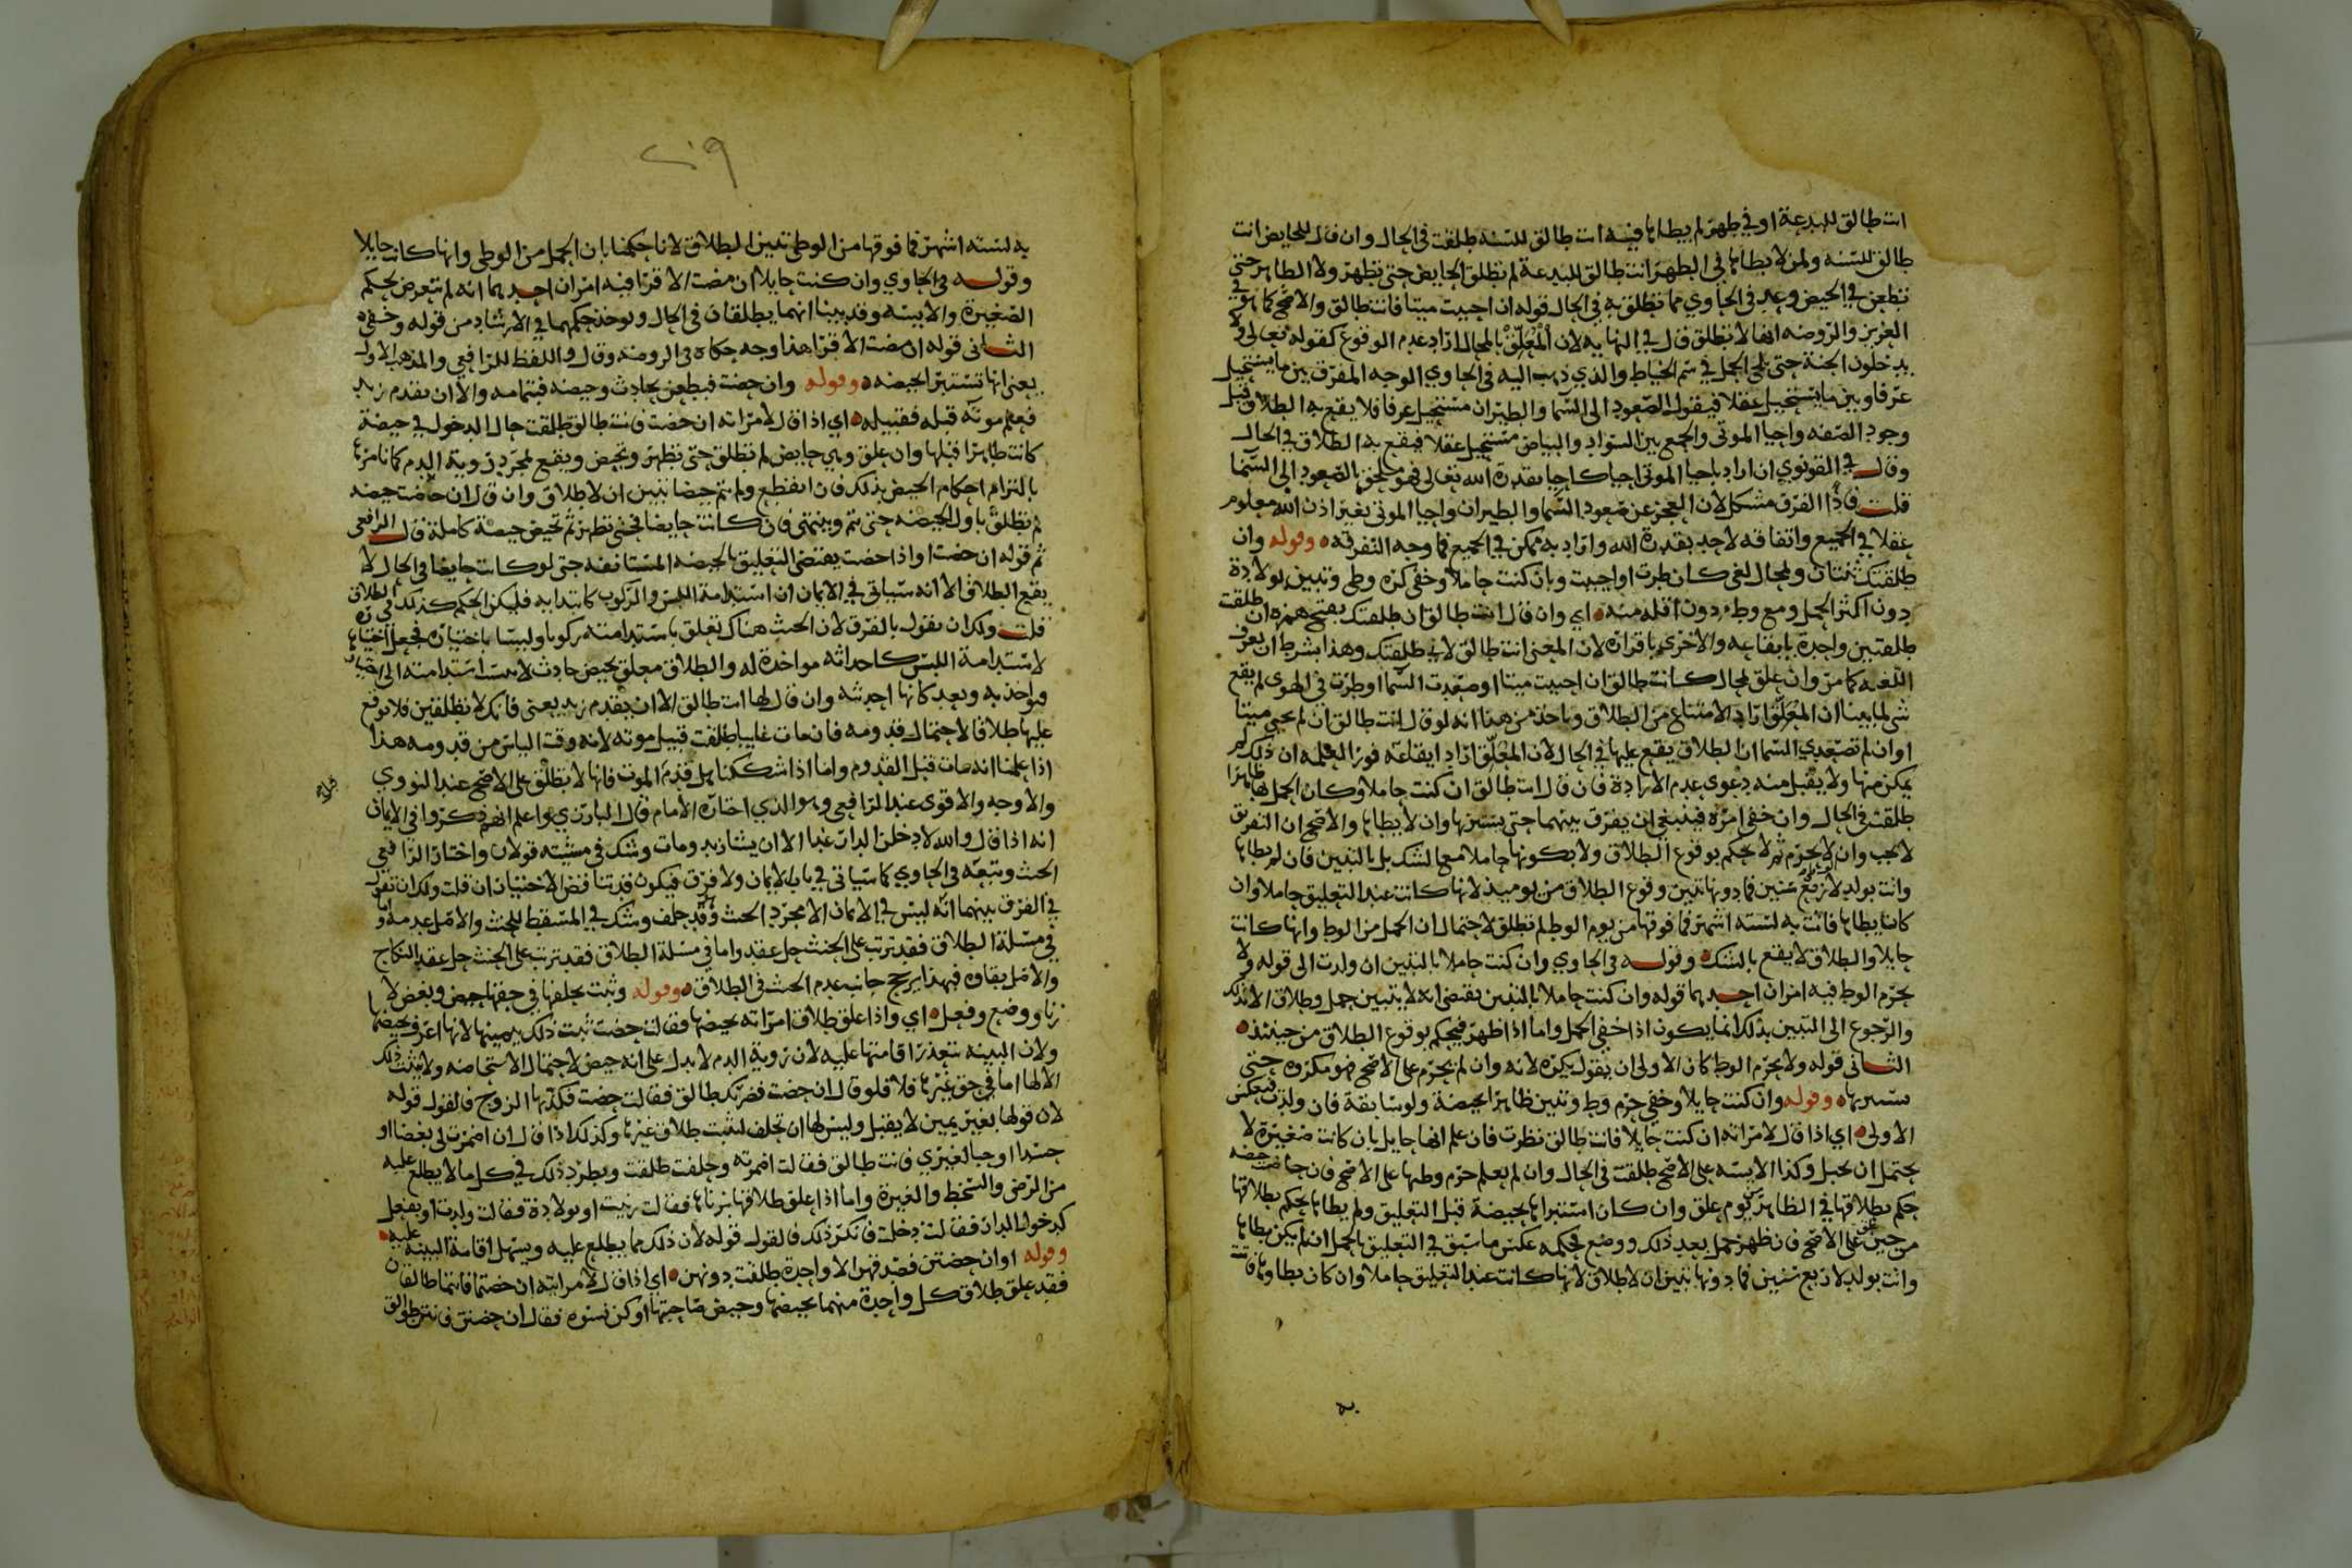 انت طالق للبدعة او في طهر لم يطاها فيه انت طالق للسنه طلقت في الحال وان قال للحايض انت
طالق للسنه ولمن لا يطاها في الطهر انت طالق للبدعة لم تطلق الحايض حتى تطهر ولا الطاهر حتى
تطعن في الحيض وعد في الحاوي مما تطلق به في الحال قوله ان احييت ميتا فانت طالق والاصح كما هو في
العزيز والروضه انها لا تطلق قال في النهايه لان المعلق بالمحال اراد عدم الوقوع كقوله تعالى ولا
يدخلون الجنة حتى يلج الجمل في سم الخياط والذي ذهب اليه في الحاوي الوجه المفرق بين ما يستحيل
عرفا وبين ما يستحيل عقلا فيقول الصعود الى السما والطيران مستحيل عرفا فلا يقع به الطلاق قبل
وجود الصفه واحيا الموتى والجمع بين السواد والبياض مستحيل عقلا فيقع به الطلاق في الحال
وقال القونوي ان اراد باحيا الموتى احيا كاحيا بقدرة الله تعالى فهو ملحق بالصعود الى السما
قلت فاذا الفرق مشكل لان العجز عن صعود السما والطيران واحيا الموتى بغير اذن الله معلوم
عقلا في الجميع واتفاقه لاحد بقدرة الله واراد به ممكن في الجميع فما وجه التفرقه وقوله وان
طلقتك ثنتان ولمحال لغى كان طرت او احييت وبان كنت حاملا وخفي كره وطي وتبين بولادة
دون اكثر الحمل ومع وطء دون اقله منه اي وان قال انت طالق ان طلقتك بفتح همزه ان طلقت
طلقتين واحدة بايقاعه والاخرى باقراره لان المعنى انت طالق لاني طلقتك وهذا بشرط ان يعرف
اللغه كما مر وان علق لمحال كانت طالق ان احييت ميتا او صعدت السما او طرت في الهوى لم يقع
شي لما بينا ان المعلق اراد الامتناع من الطلاق وياخذ من هذا انه لو قال انت طالق ان لم تحيي ميتا
او ان لم تصعدي السما ان الطلاق يقع عليها في الحال لان المعلق اراد ايقاعه فورا لعلمه ان ذلك لم
يمكن منها ولا يقبل منه دعوى عدم الارادة فان قال انت طالق ان كنت حاملا وكان الحمل بها ظاهرا
طلقت في الحال وان خفي امره فينبغي ان يفرق بينهما حتى يستبرها وان لا يطاها والاصح ان التفريق
لا يجب وان لا يحرم ثم لا يحكم بوقوع الطلاق ولا بكونها حاملا مع الشك بل بالتبين فان لم يطاها
واتت بولد لاربع سنين فما دونها تبين وقوع الطلاق من يوميذ لانها كانت عند التعليق حاملا وان
كان يطاها فاتت به لسته اشهر فما فوقها من يوم الوطء لم تطلق لاحتمال ان الحمل من الوطء وانها كانت
حايلا والطلاق لا يقع بالشك وقوله في الحاوي وان كنت حاملا بالتبين ان ولدت الى قوله ولا
يحرم الوطء فيه امران احدهما قوله وان كنت حاملا بالتبين يقتضي انه لا يتبين حمل وطلاق الا بذلك
والرجوع الى التبين بذلك انما يكون اذا خفي الحمل واما اذا ظهر فيحكم بوقوع الطلاق من حينئذ
الثاني قوله ولا يحرم الوطء كان الاولى ان يقول يكره لانه وان لم يحرم على الاصح فهو مكروه حتى
يستبريها وقوله وان كنت حايلا وخفي حرم وطء وتبين ظاهرا بحيضة ولو سابقة فان ولدت فبعكس
الاولى اي اذا قال لامراته ان كنت حايلا فانت طالق نظرت فان علم انها حايل بان كانت صغيرة لا
يحتمل ان تحبل وكذا الايسه على الاصح طلقت في الحال وان لم يعلم حرم وطيها على الاصح فان حاضت حيضه
حكم بطلاقها في الظاهر من يوم علق وان كان استبراها بحيضة قبل التعليق ولم يطاها يحكم بطلاقها
من حين علق على الاصح فان ظهر حمل بعد ذلك ووضع فحكمه عكس ما سبق في التعليق بالحمل ان لم يكن يطاها
واتت بولد لاربع سنين فما دونها تبين ان لا طلاق لانها كانت عند التعليق حاملا وان كان يطاوها فاتت
به
٢٠٩
به لسته اشهر فما فوقها من الوطي تبين الطلاق لانا حكمنا بان الحمل من الوطي وانها كانت حايلا
وقوله في الحاوي وان كنت حايلا ان مضت الاقرا فيه امران احدهما انه لم يتعرض لحكم
الصغيرة والايسه وقد بينا انهما يطلقان في الحال ويوخذ حكمهما في الارشاد من قوله وخفي
الثاني قوله ان مضت الاقرا هذا وجه حكاه في الروضه وقال واللفظ للرافعي والمذهب الاول
يعني انها تستبرا بحيضه وقوله وان حضت فبطعن بحادث وحيضه فبتمامه والا ان يقدم زيد
فعلم موته قبله فقبيله اي اذا قال لامراته ان حضت فانت طالق طلقت حال الدخول في حيضة
كانت طاهرا قبلها وان علق وهي حايض لم تطلق حتى تطهر وتحيض ويقع بمجرد روية الدم كما نامرها
بالتزام احكام الحيض بذلك فان انقطع ولم يتم حيضا تبين ان لا طلاق وان قال ان حضت حيضه
لم تطلق باول الحيضه حتى تتم وينتهي فان كانت حايضا فحتى تطهر ثم تحيض حيضة كاملة قال الرافعي
ثم قوله ان حضت او اذا حضت يقتضي التعليق بالحيضه المستانفه حتى لو كانت حايضا في الحال لا
يقع الطلاق الا انه سياتي في الايمان ان استدامة اللبس والركوب كابتدايه فليكن الحكم كذلك في الطلاق
قلت ولك ان تقول بالفرق لان الحنث هناك تعلق باستدامته ركوبا ولبسا باختياره فجعل
لاستدامة اللبس كاحداثه مواخذة له والطلاق معلق بحيض حادث لا
فيواخذ به ويعد كانها احدثته وان قال لها انت طالق الا ان يقدم زيد يعني فانك لا تطلقين فلا نوقع
عليها طلاقا لاحتمال قدومه فان مات غايبا طلقت قبيل موته لانه وقت الياس من قدومه هذا
اذا علمنا انه مات قبل القدوم واما اذا شككنا هل قدم الموت فانها لا تطلق على الاصح عند النووي
والاوجه والاقوى عند الرافعي وهو الذي اختاره الامام قال البارزي واعلم انهم ذكروا في الايمان
انه اذا قال والله لادخلن الدار غدا الا ان يشا زيد ومات وشك في مشيته قولان واختار الرافعي
الحنث وتبعه في الحاوي كما سياتي في باب الايمان ولا فرق فيكون قد تناقض الاختياران قلت ولك ان تقول
في الفرق بينهما انه ليس في الايمان الا مجرد الحنث وقد حلف وشك في المسقط للحنث والاصل عدمه واما
في مسلة الطلاق فقد ترتب على الحنث حل عقد واما في مسلة الطلاق فقد ترتب على الحنث حل عقد النكاح
والاصل بقاوه فبهذا يرجح جانب عدم الحنث في الطلاق وقوله وثبت بحلفها في حقها حيض وبغض لا
زنا ووضع وفعل اي واذا علق طلاق امراته بحيضها فقالت حضت ثبت ذلك بيمينها لانها اعرف بحيضها
ولان البينه تتعذر اقامتها عليه لان روية الدم لا يدل على انه حيض لاحتمال الاستحاضه ولا يثبت ذلك
الا لها اما في حق غيرها فلا فلو قال ان حضت فضرتك طالق فقالت حضت فكذبها الزوج فالقول قوله
لان قولها بغير يمين لا يقبل وليس لها ان تحلف لتثبت طلاق غيرها وكذلك اذا قال ان اضمرت لي بغضا او
حسدا او حبا لغيري فانت طالق فقالت اضمرته وحلفت طلقت ويطرد ذلك في كل ما لا يطلع عليه
من الرضى والسخط والغيرة واما اذا علق طلاقها بزناها فقالت زنيت او بولادة فقالت ولدت او بفعل
كدخول الدار فقالت دخلت فانكر ذلك فالقول قوله لان ذلك مما يطلع عليه ويسهل اقامة البينة عليه
وقوله او ان حضتن فصدقهن الا واحدة طلقت دونهن اي اذا قال لامراتيه ان حضتما فانتما طالقان
فقد علق طلاق كل واحدة منهما بحيضها وحيض صاحبتها او كن نسوه فقال ان حضتن فانتن طوالق